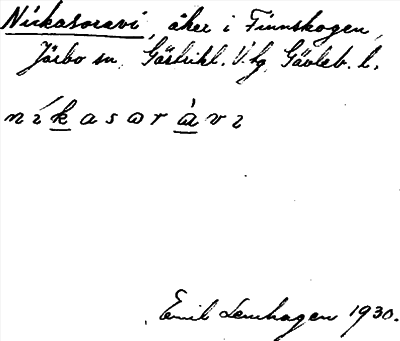 Nickasoravi, åker i Finnskogen,
Järbo sn. Gästrikl. V. lg Gävleb. l.
níkasɷràvi
Emil Lenhagen 1930.